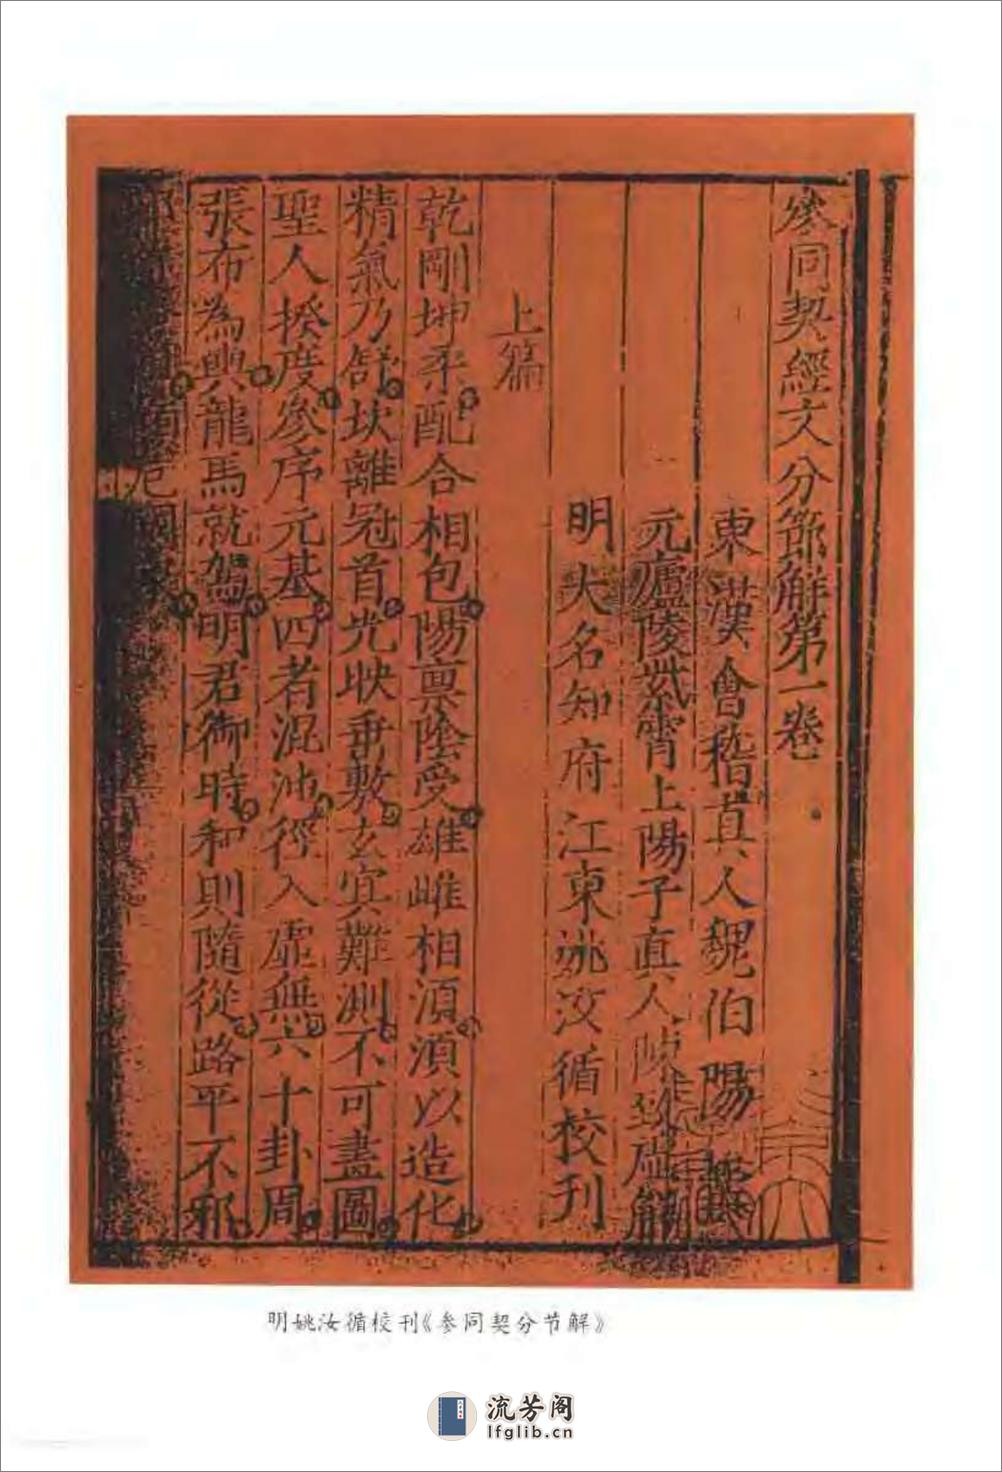 參同契經文分節解第一卷
東漢會稽真人魏伯陽
元廬陵紫霄上陽子真人陳致虛解
明大名知府江東姚汝循校刊
上篇
乾剛坤柔配合相包陽禀陰受雄雌相湏湏以造化
精氣乃舒坎離冠首光映垂敷玄冥難測不可畫圖
聖人揆度參序元基四者混沌徑入虛無六十卦周
張布為輿龍馬就駕明君御時和則隨從路平不邪
明姚汝循校刊《参同契分节解》
流芳阁
lfglib.cn